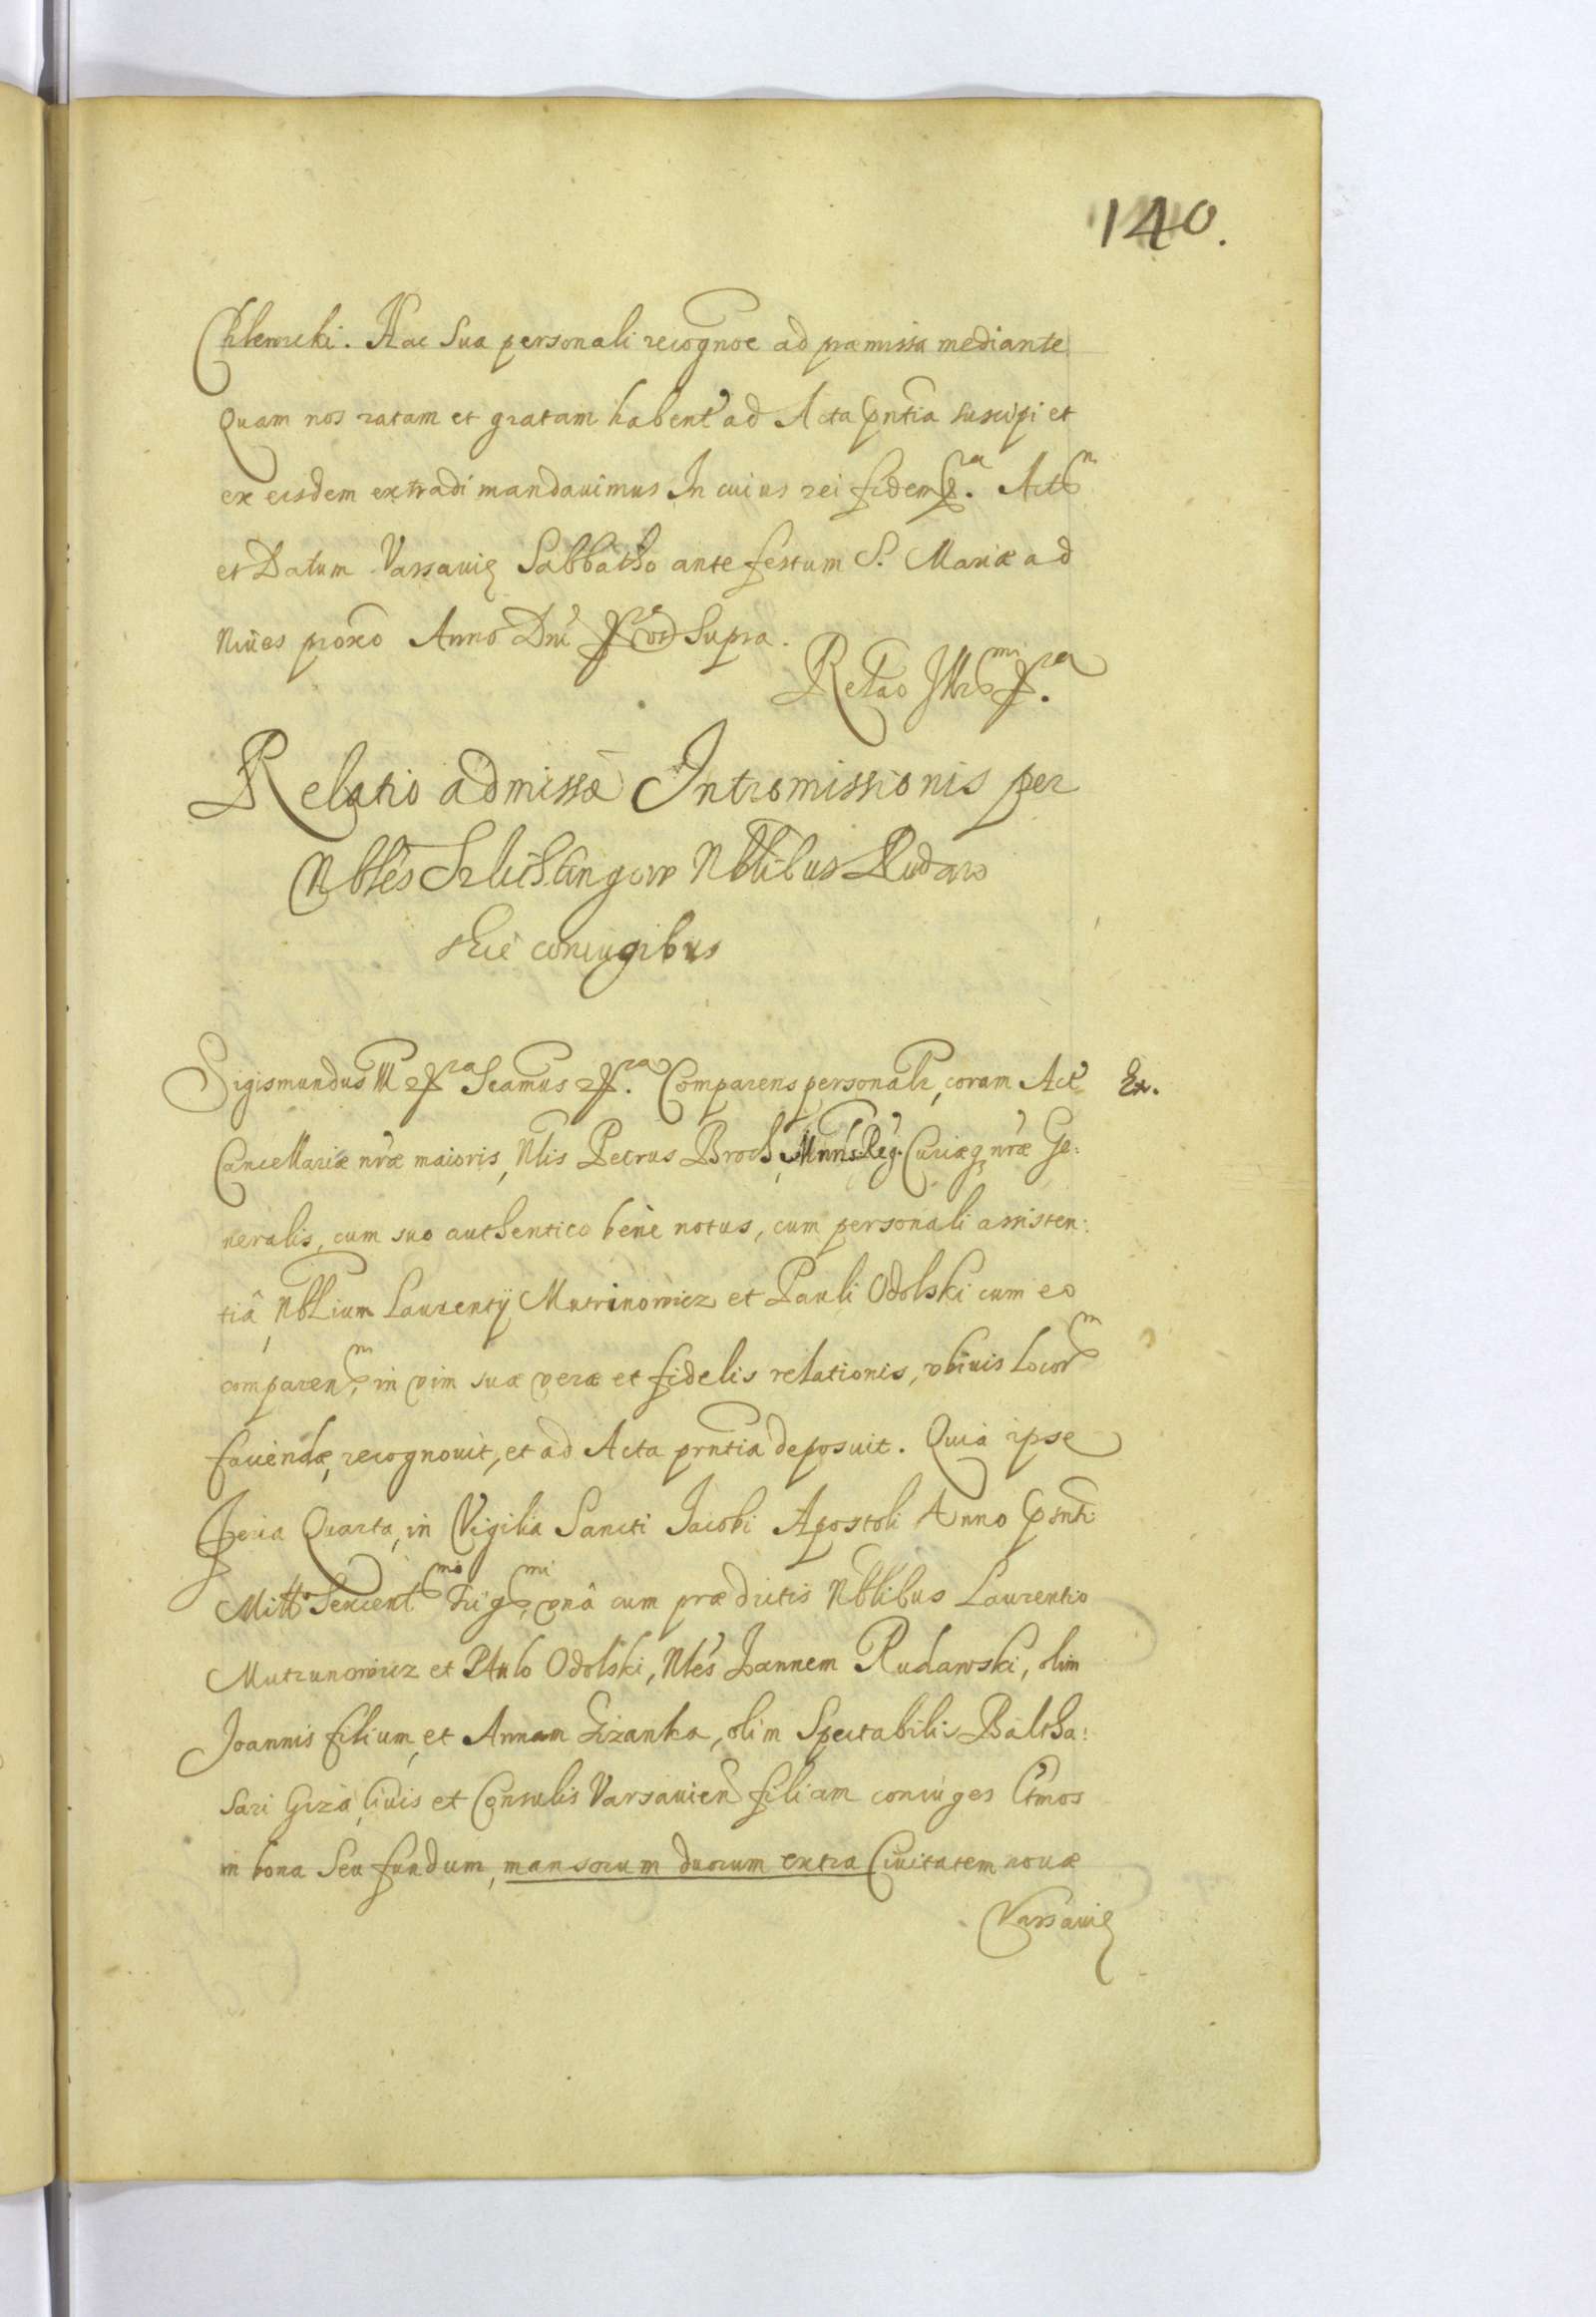 140.
Chlewicki. Hac sua personali recognõe ad præmissa mediante
Quam nos ratam et gratam habent ad Acta pntia suscipi et
ex eisdem extradi mandavimus In cuius rei fidem Act
et Datum Varsaviæ Sabbatho ante festum S. Mariæ ad
Nives proxo Anno Dni supra.
Relao Illr
Relatio admissæ Intromissionis per
Nbles Szlichtingow Nblibus Rudaw
skie coniugibus
Sigismundus III Seamus Comparens personalr, coram Act Ex.
Cancellariæ nræ maioris, Nlis Petrus Broch, Mnrls Reg. Curiæq nræ Ge:
neralis, cum suo authentico bene notus, cum personali assisten:
tiâ Nblium Laurentij Mutrinowicz et Pauli Odolski cum eo
comparen, in vim suæ veræ et fidelis relationis, ubiuis Locor
faciendæ, recognovit, et ad Acta prntia deposuit. Quia ipse
Feria Quarta, in Vigilia Sancti Jacobi Apostoli Anno pnti
Mill Sexcent Trig, vnâ cum prædictis Nblibus Laurentio
Mutrunowicz et Paulo Odolski, Nles Joannem Rudawski, olim
Joannis filium, et Annam Gizanka, olim Spectabilis Baltha:
sari Giza, Civis et Consulis Varsavien filiam coniuges Ctmos
in bona seu fundum, mansorum duorum extra Civitatem novæ
Varsaviæ